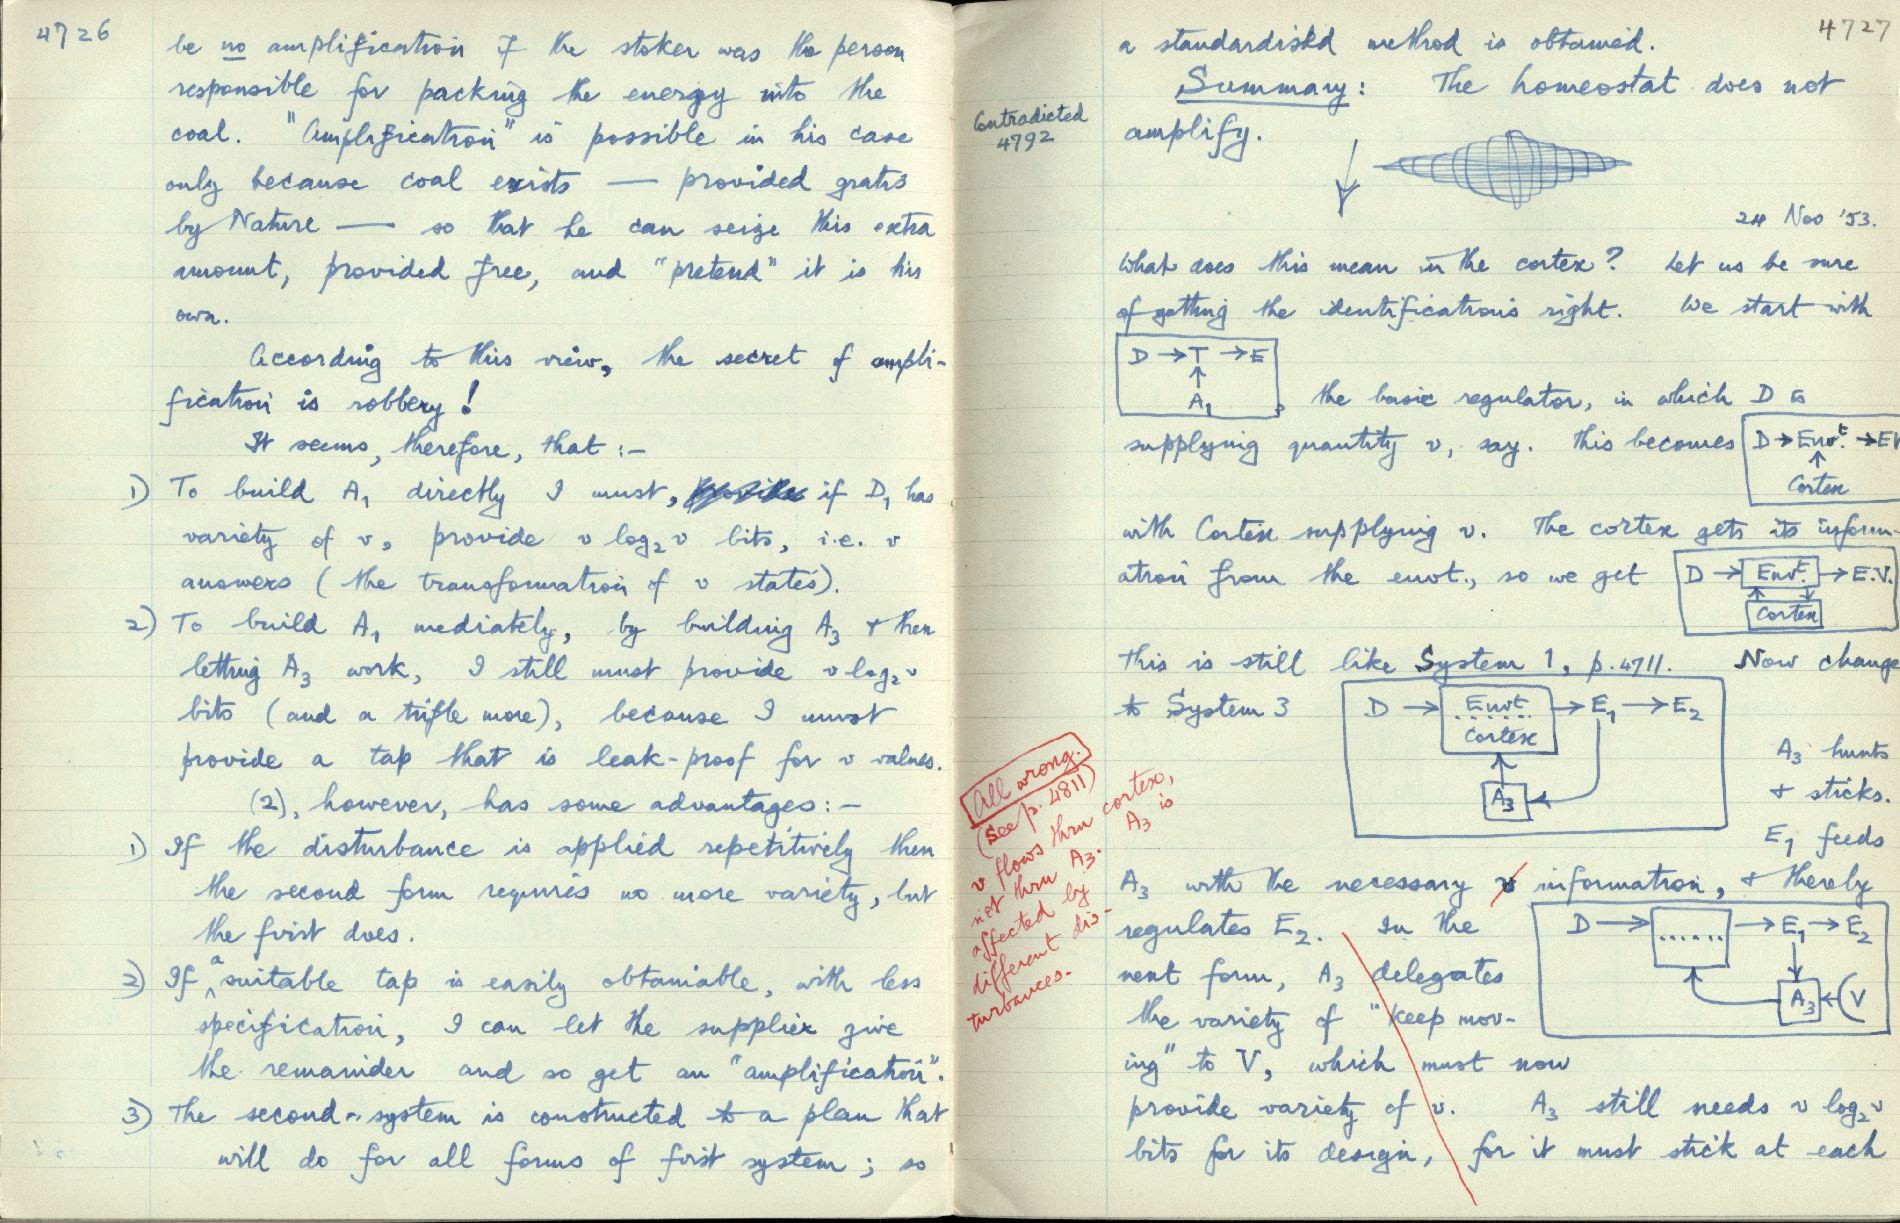 4726
be no amplification if the stoker was the person
responsible for packing the energy into the
coal. "Amplification" is possible in his case
only because coal exists — provided gratis
by Nature — so that he can seize this extra
amount, provided free, and "pretend" it is his
own.
According to this view, the secret of ampli-
fication is robbery!
It seems, therefore, that :—
1) To build A₁ directly I must, if D₁ has
variety of v, provide v log₂ v bits, i.e. v
answers (the transformation of v states).
2) To build A₁ mediately, by building A₃ & then
letting A₃ work, I still must provide v log₂ v
bits (and a trifle more), because I must
provide a tap that is leak-proof for v values.
(2), however, has some advantages :—
1) If the disturbance is applied repetitively then
the second form requires no more variety, but
the first does.
2) If a suitable tap is easily obtainable, with less
specification, I can let the supplier give
the remainder and so get an "amplification".
3) The second system is constructed to a plan that
will do for all forms of first system; so
4727
a standardised method is obtained.
Summary: The homeostat does not
amplify.
Contradicted
4792
24 Nov '53.
What does this mean in the cortex? Let us be sure
of getting the identifications right. We start with
D → T → E
↑
A₁
, the basic regulator, in which D is
supplying quantity v, say. This becomes
D → Envt. → EV
↑
Cortex
with Cortex supplying v. The cortex gets its inform-
ation from the envt., so we get
D → Envt. → E.V.
↑ ↓
Cortex
This is still like System 1, p. 4711. Now change
to System 3
D → Envt → E₁ → E₂
Cortex
↑
A₃
A₃ hunts
& sticks.
E₁ feeds
A₃ with the necessary v information, & thereby
regulates E₂. In the
next form, A₃ delegates
the variety of "keep mov-
ing" to V, which must now
D → ...... → E₁ → E₂
↓
A₃ ← V
provide variety of v. A₃ still needs v log₂ v
bits for its design, for it must stick at each
All wrong.
(See p. 4811)
v flows thru cortex,
not thru A₃. A₃ is
affected by
different dis-
turbances.